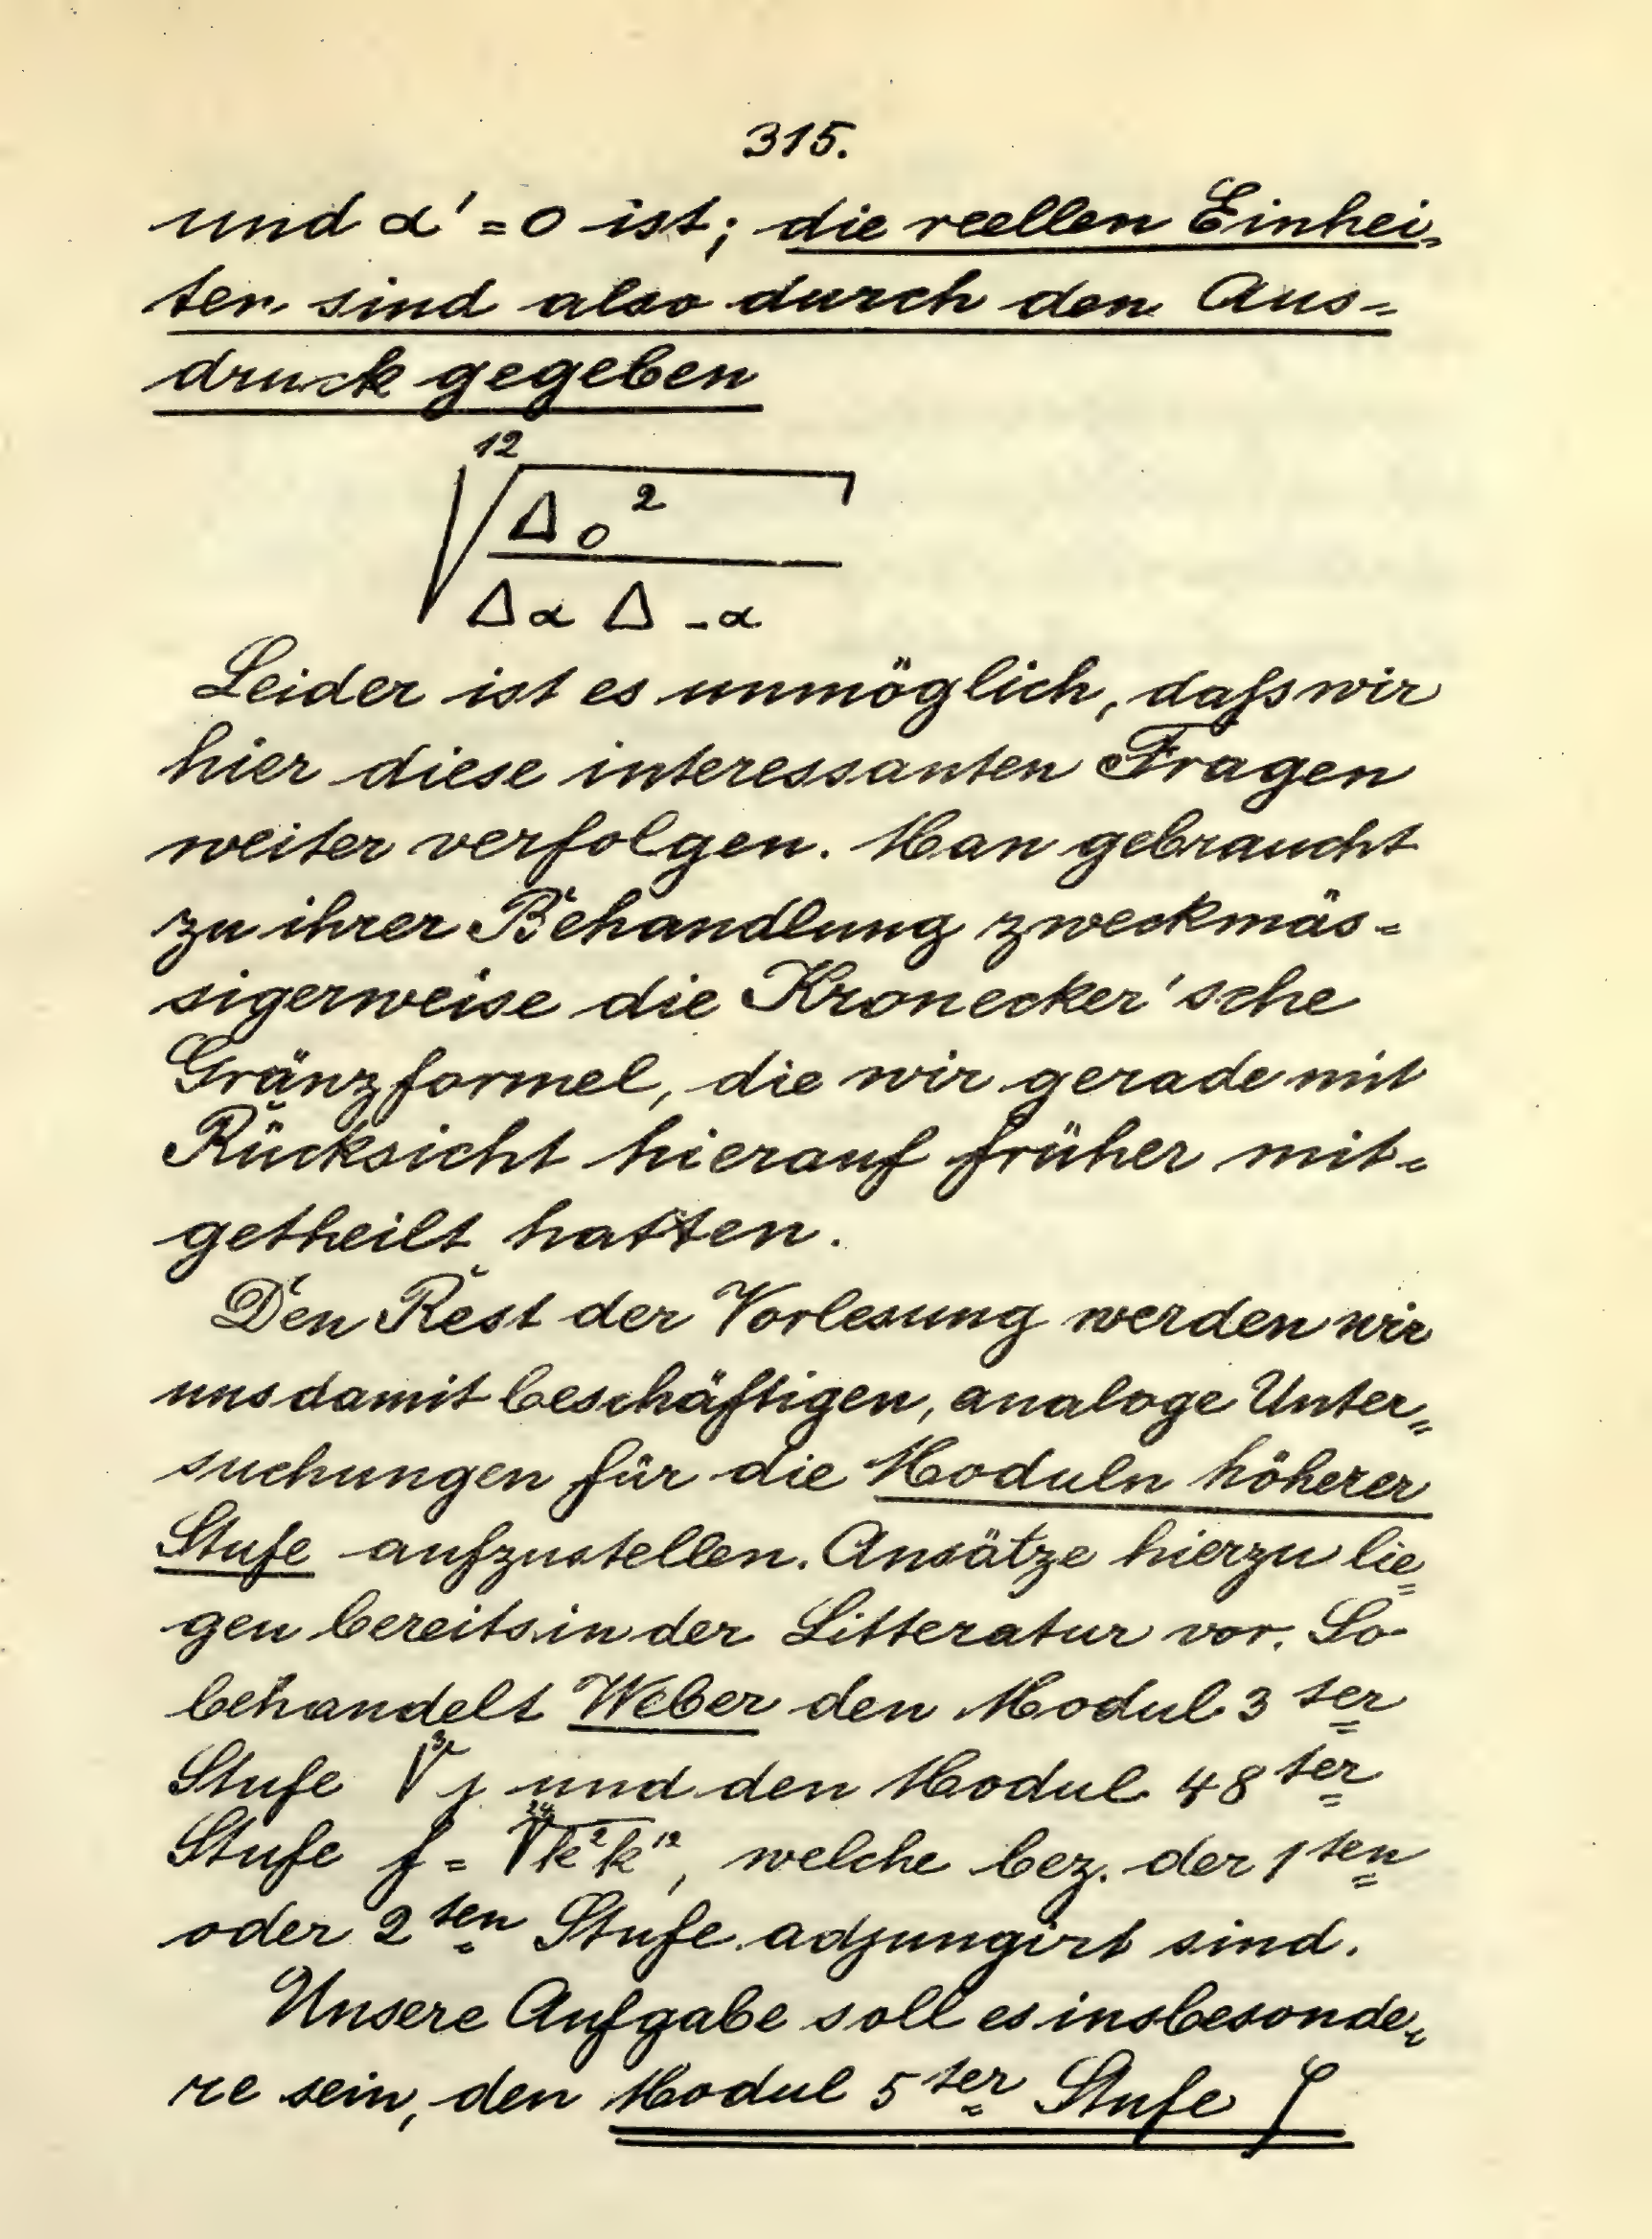 315.
und α' = 0 ist; die reellen Einhei-
ten sind also durch den Aus-
druck gegeben
12
√ Δ₀²
Δα Δ-α
Leider ist es unmöglich, daſs wir
hier diese interessanten Fragen
weiter verfolgen. Man gebraucht
zu ihrer Behandlung zweckmäs-
sigerweise die Kronecker'sche
Gränzformel, die wir gerade mit
Rücksicht hierauf früher mit-
getheilt hatten.
Den Rest der Vorlesung werden wir
uns damit beschäftigen, analoge Unter-
suchungen für die Moduln höherer
Stufe aufzustellen. Ansätze hierzu lie-
gen bereits in der Litteratur vor. So
behandelt Weber den Modul 3ter
Stufe ∛j und den Modul 48ter
Stufe f = ²⁴√k²k'², welche bez. der 1ten
oder 2ten Stufe adjungirt sind.
Unsere Aufgabe soll es insbesonde-
re sein, den Modul 5ter Stufe ζ